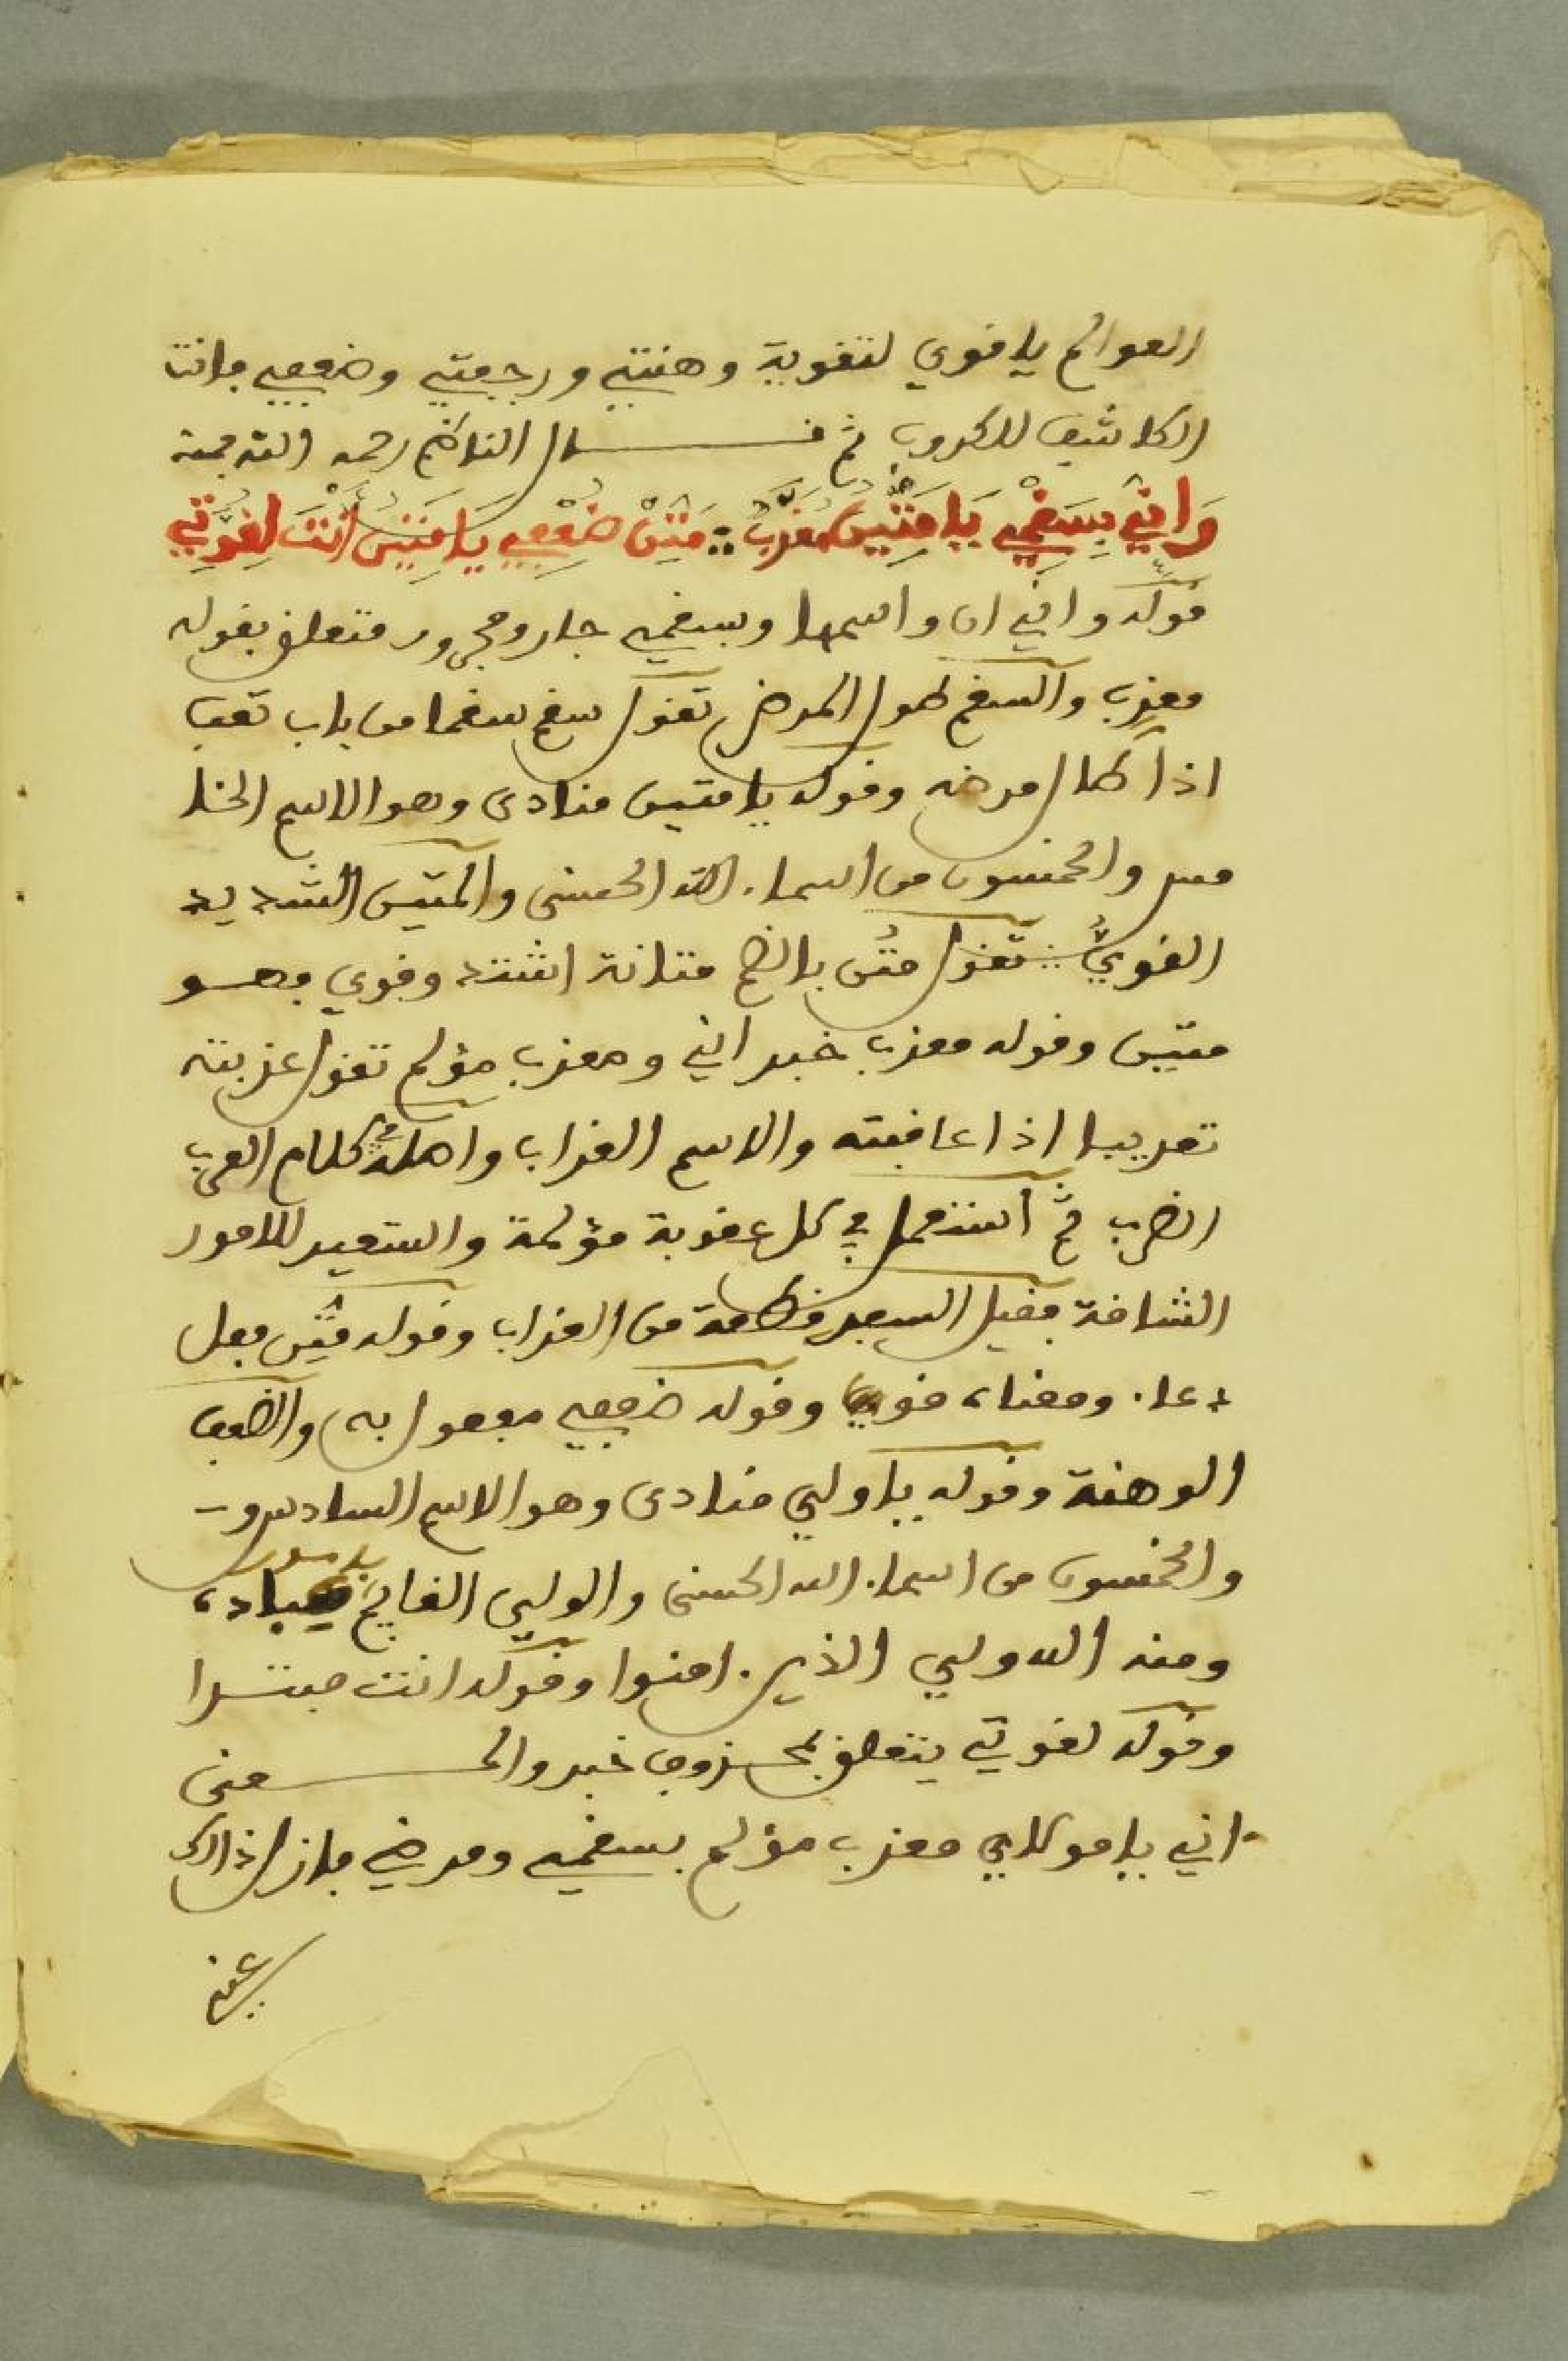 العوالم يا قوي لتقوية وهنتي ورجعتي وضعفي فانت
الكاشف للكروب ثم قال الناظم رحمه الله
وَاِنِّي بِسَقْمِي يَا مَتِينُ مُعَذَّبٌ ∴ مَتِّنْ ضُعْفِي يَا مَتِينُ أَنْتَ لِقُوَّتِي
قوله واني ان واسمها وبسقمي جار ومجرور متعلق بقوله
معذب والسقم طول المرض تقول سقم سقما من باب تعب
اذا طال مرضه وقوله يا متين منادى وهو الاسم الخا
مس والخمسون من اسماء الله الحسنى والمتين الشديد
القويُّ تقول متُن بالضم متانة اشتد وقوي فهو
متين وقوله معذب خبر اني ومعذب مؤلم تقول عذبته
تعذيبا اذا عاقبته والاسم العذاب واصله في كلام العرب
الضرب ثم استعمل في كل عقوبة مؤلمة واستعير للامور
الشاقة فقيل السفر قطعة من العذاب وقوله متّن فعل
دعاء ومعناه قوي وقوله ضعفي مفعول به والضعف
الوهنة وقوله يا ولي منادى وهو الاسم السادس و
والخمسون من اسماء الله الحسنى والولي القايم بامور عباده
ومنه الله ولي الذين امنوا وقوله انت مبتدا
وقوله لقوتي يتعلق بمحذوف خبر والمعنى
اني يا مولاي معذب مؤلم بسقمي ومرضي فازل ذالك
عني